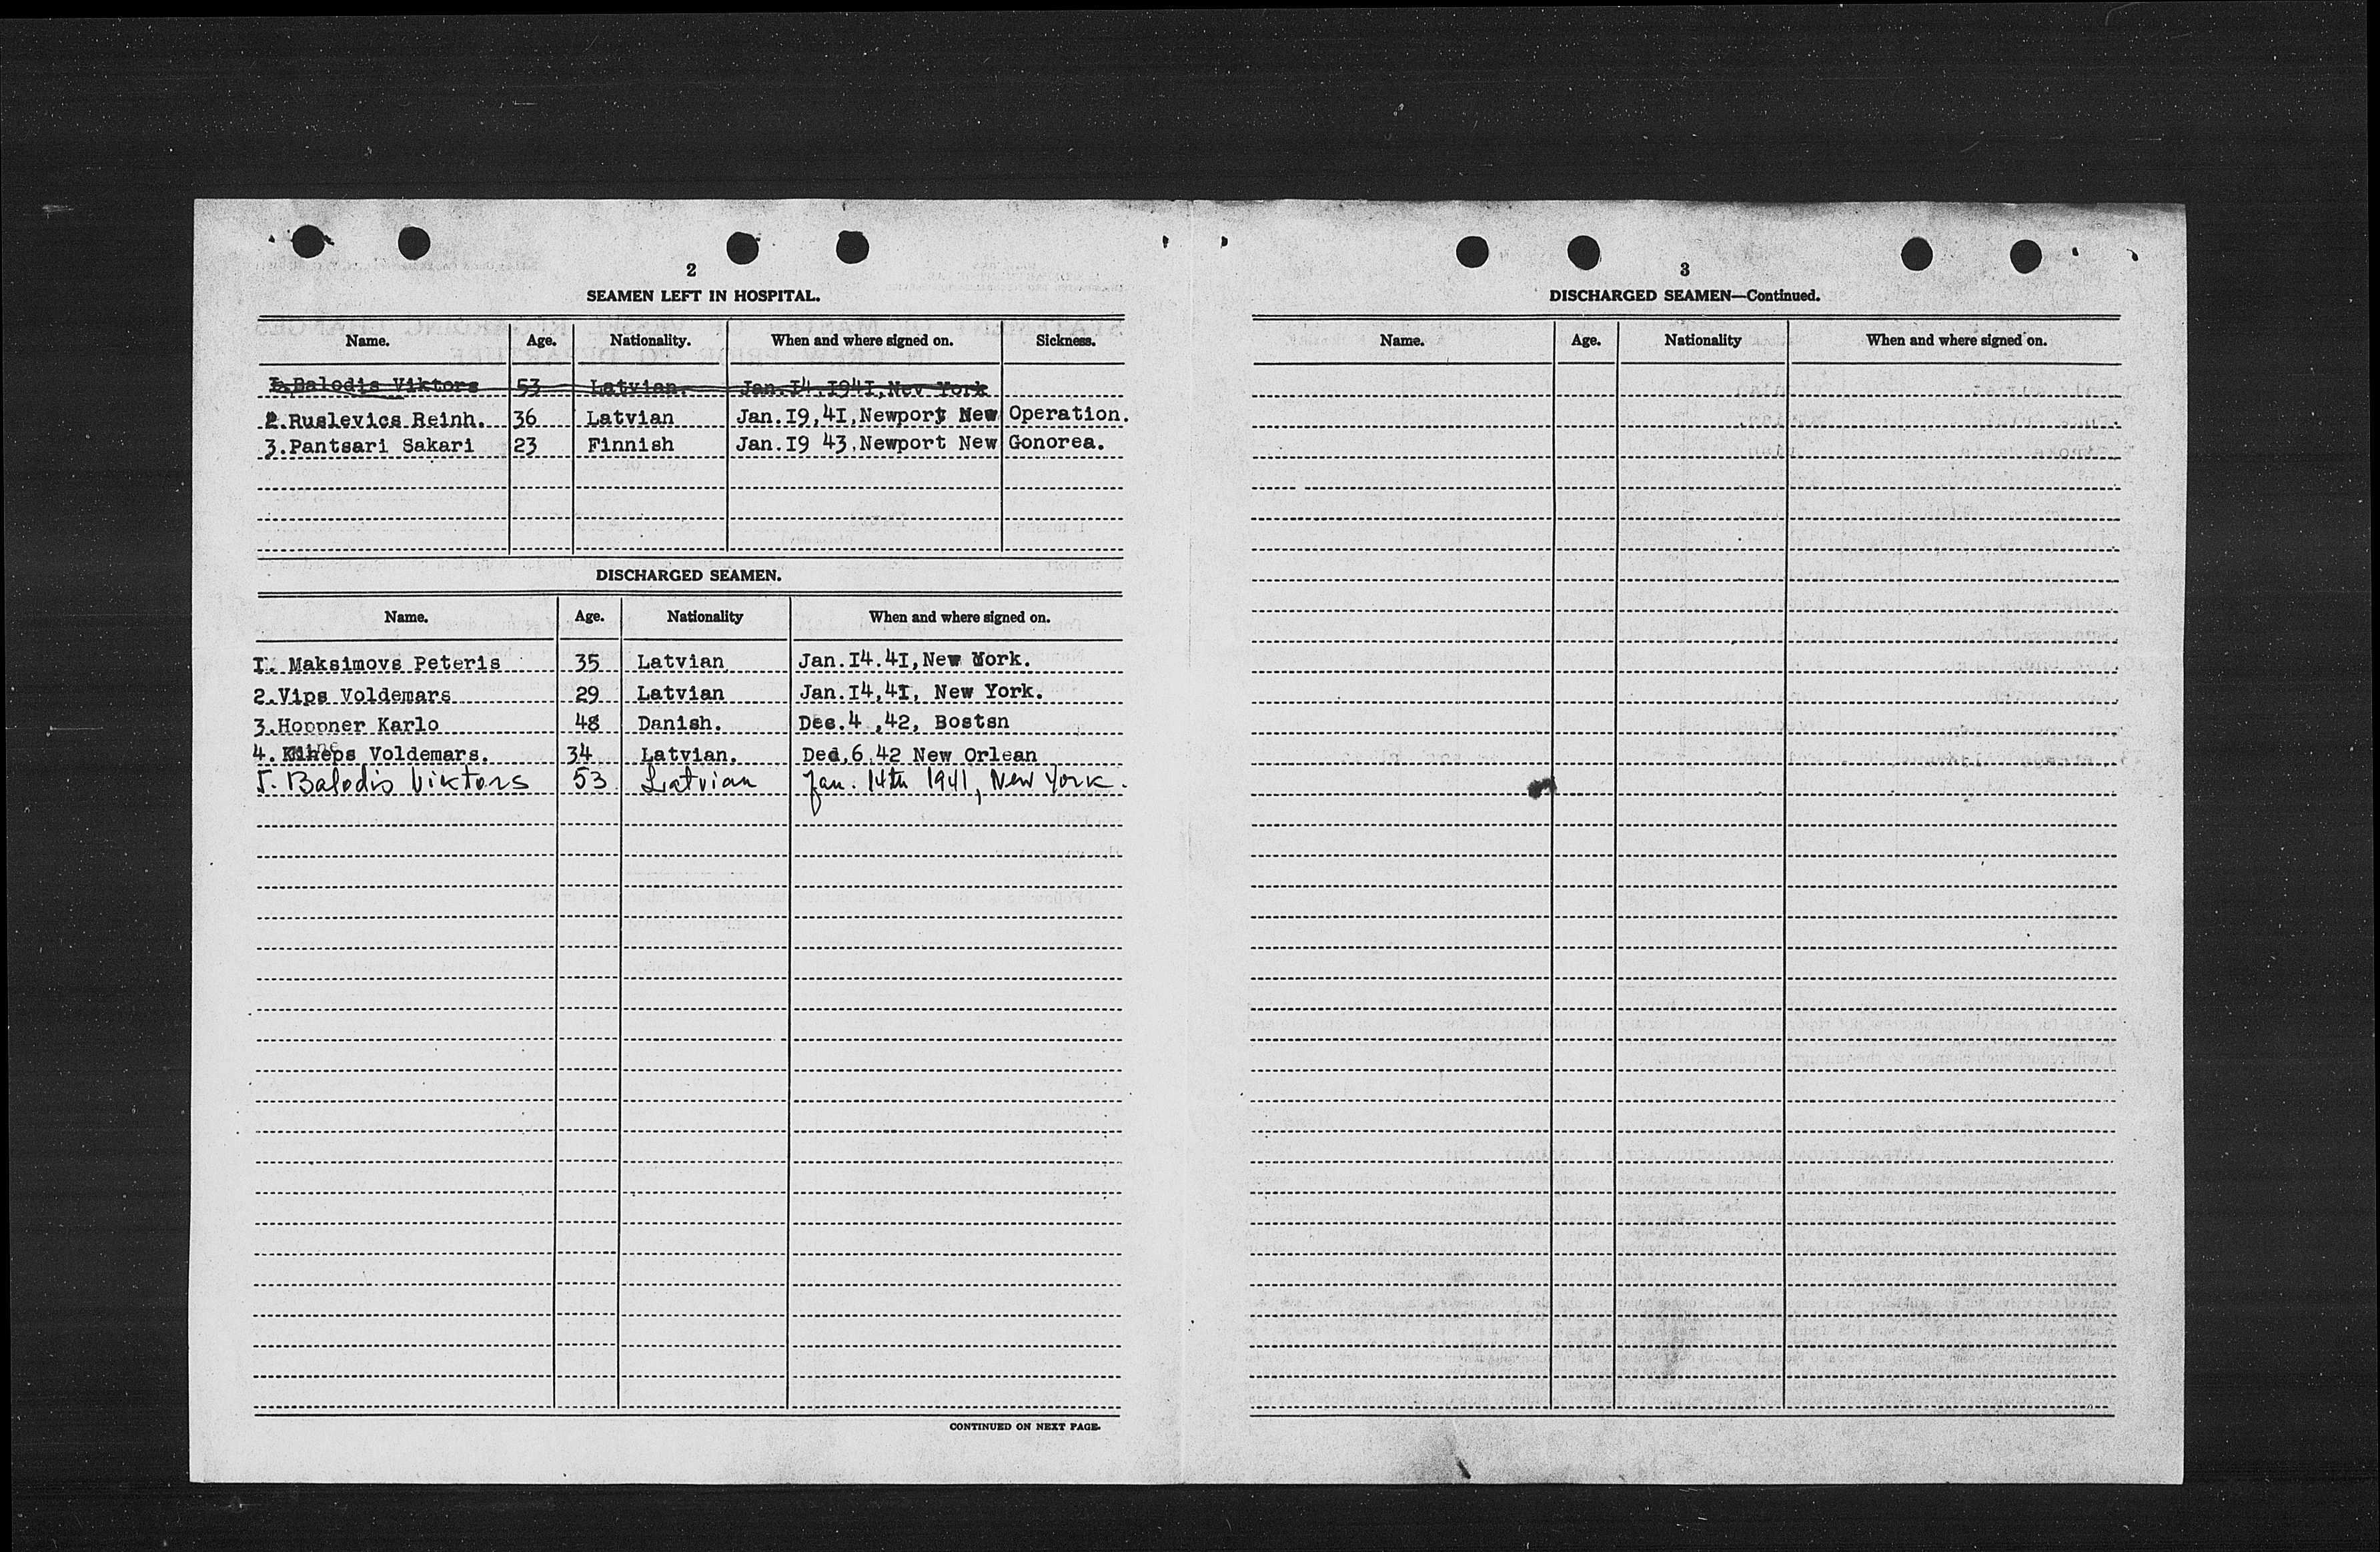 2
SEAMEN LEFT IN HOSPITAL.
Name. Age. Nationality. When and where signed on. Sickness.
1.Balodis Viktors 53 Latvian. Jan.I4.I94I,New York
2.Ruslevics Reinh. 36 Latvian Jan.I9,4I,Newport New Operation.
3.Pantsari Sakari 23 Finnish Jan.I9 43,Newport New Gonorea.
DISCHARGED SEAMEN.
Name. Age. Nationality When and where signed on.
I. Maksimovs Peteris 35 Latvian Jan.I4.4I,New York.
2.Vips Voldemars 29 Latvian Jan.I4,4I, New York.
3.Hoppner Karlo 48 Danish. Dec.4 ,42, Bostsn
4. Voldemars. 34 Latvian. Ded.6.42 New Orlean
5. Balodis Viktors 53 Latvian Jan. 14th 1941, New York.
CONTINUED ON NEXT PAGE.
3
DISCHARGED SEAMEN—Continued.
Name. Age. Nationality When and where signed on.